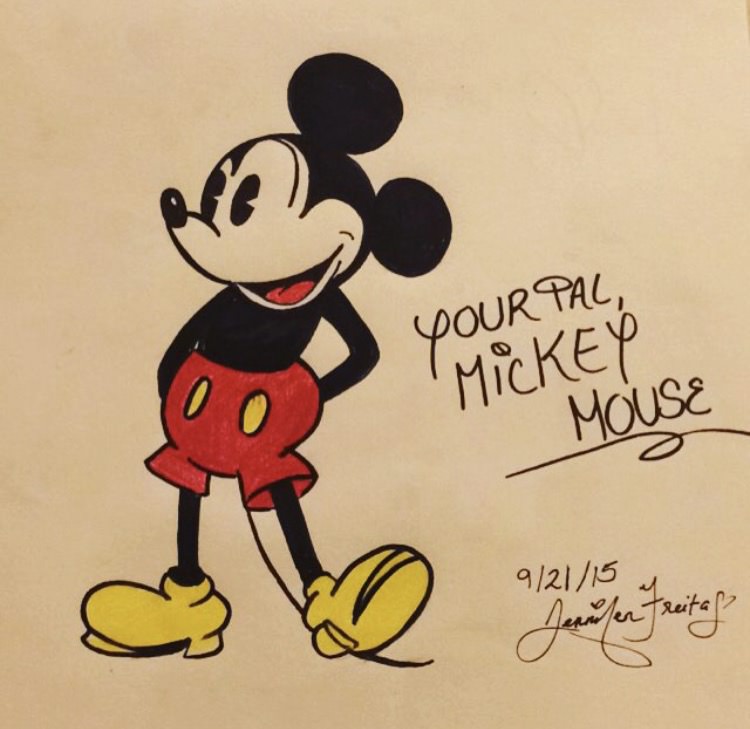 YOUR PAL,
MICKEY
MOUSE
9/21/15
Jennifer Freitas